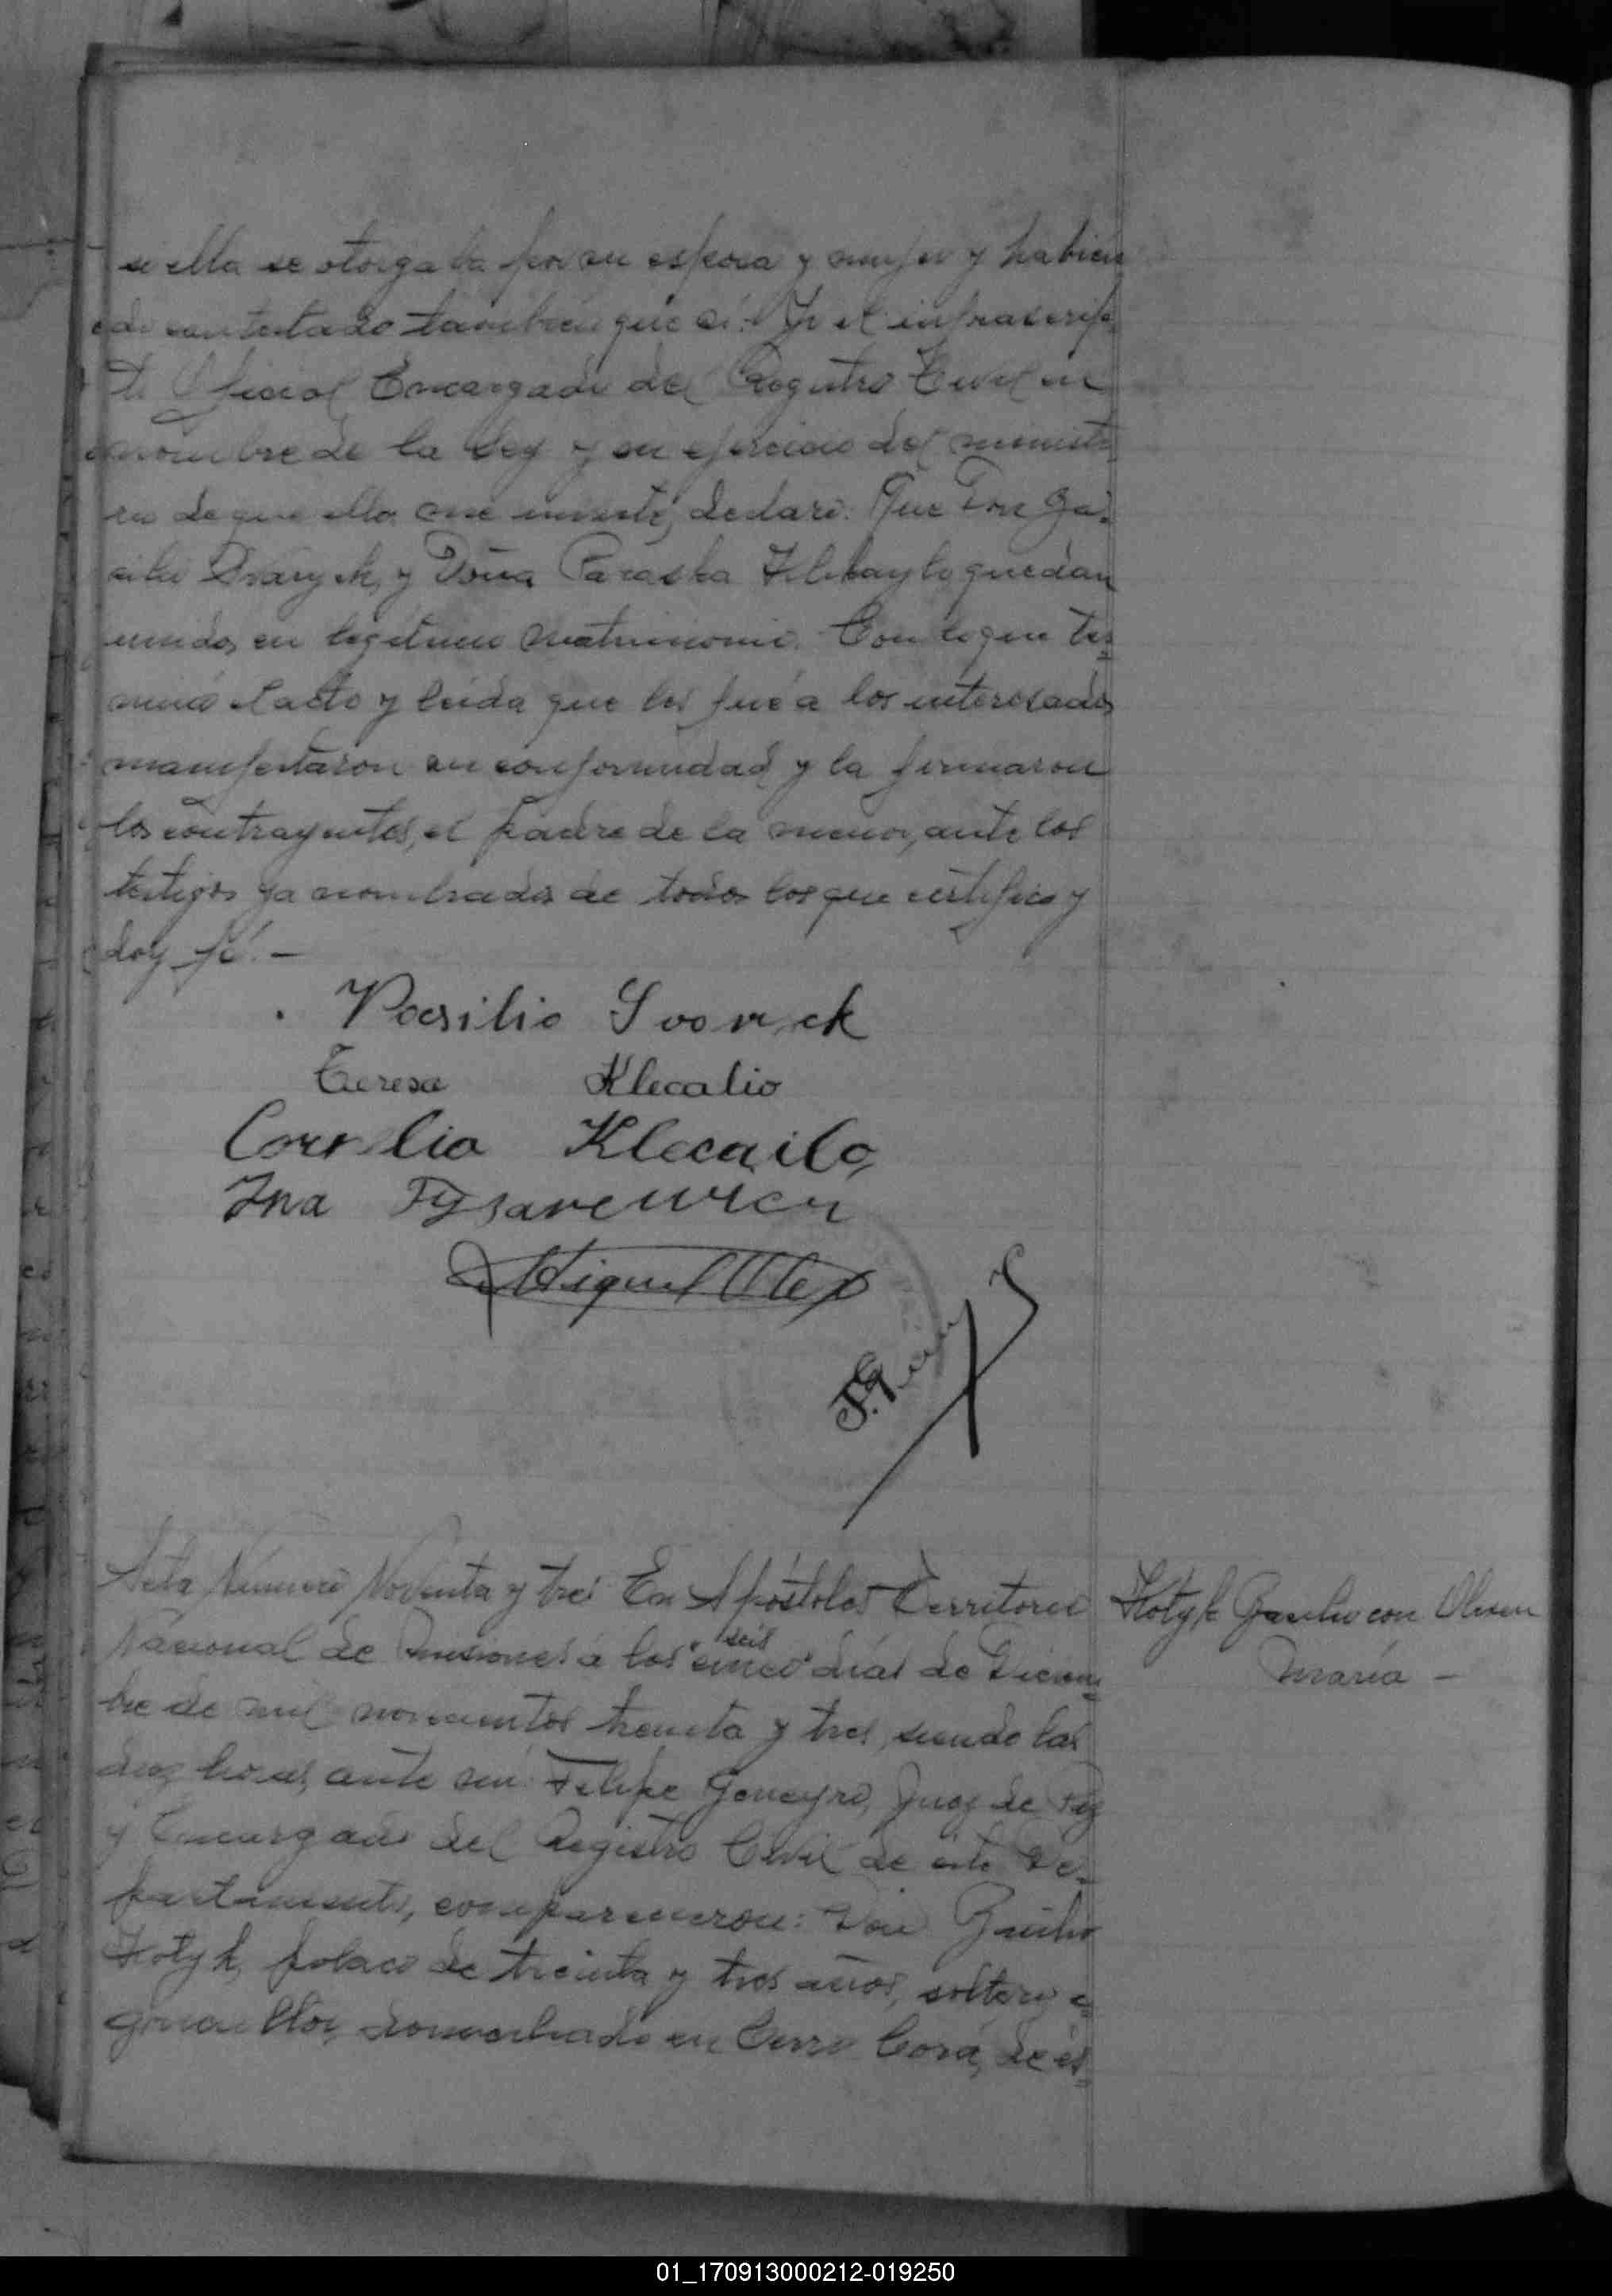 si ella se otorgaba por su esposa y mujer y habien
do contestado también que sí. Yo el infrascrip-
to Oficial Encargado del Registro Civil en
nombre de la Ley y en ejercicio del ministe-
rio de que ella me inviste, declaro: Que Don
y Doña Paraska quedan
unidos en legítimo matrimonio. Con lo que ter-
minó el acto y leída que les fué a los interesados
manifestaron su conformidad y la firmaron
los contrayentes, el padre de la menor, ante los
testigos ya nombrados de todos los que certifico y
doy fé. –
Teresa Klecalio
Klecailo
Miguel
Acta Número Noventa y tres En Apóstoles Territorio
Nacional de Misiones á los "cinco" días de Diciem-
seis
bre de mil novecientos treinta y tres, siendo las
diez horas, ante mí Felipe Juez de Paz
y Encargado del Registro Civil de este De-
partamento, comparecieron: Don
Kotyk, polaco de treinta y tres años, soltero a-
gricultor, domiciliado en Cerro Corá, de és-
Kotyk con
María –
01_170913000212-019250